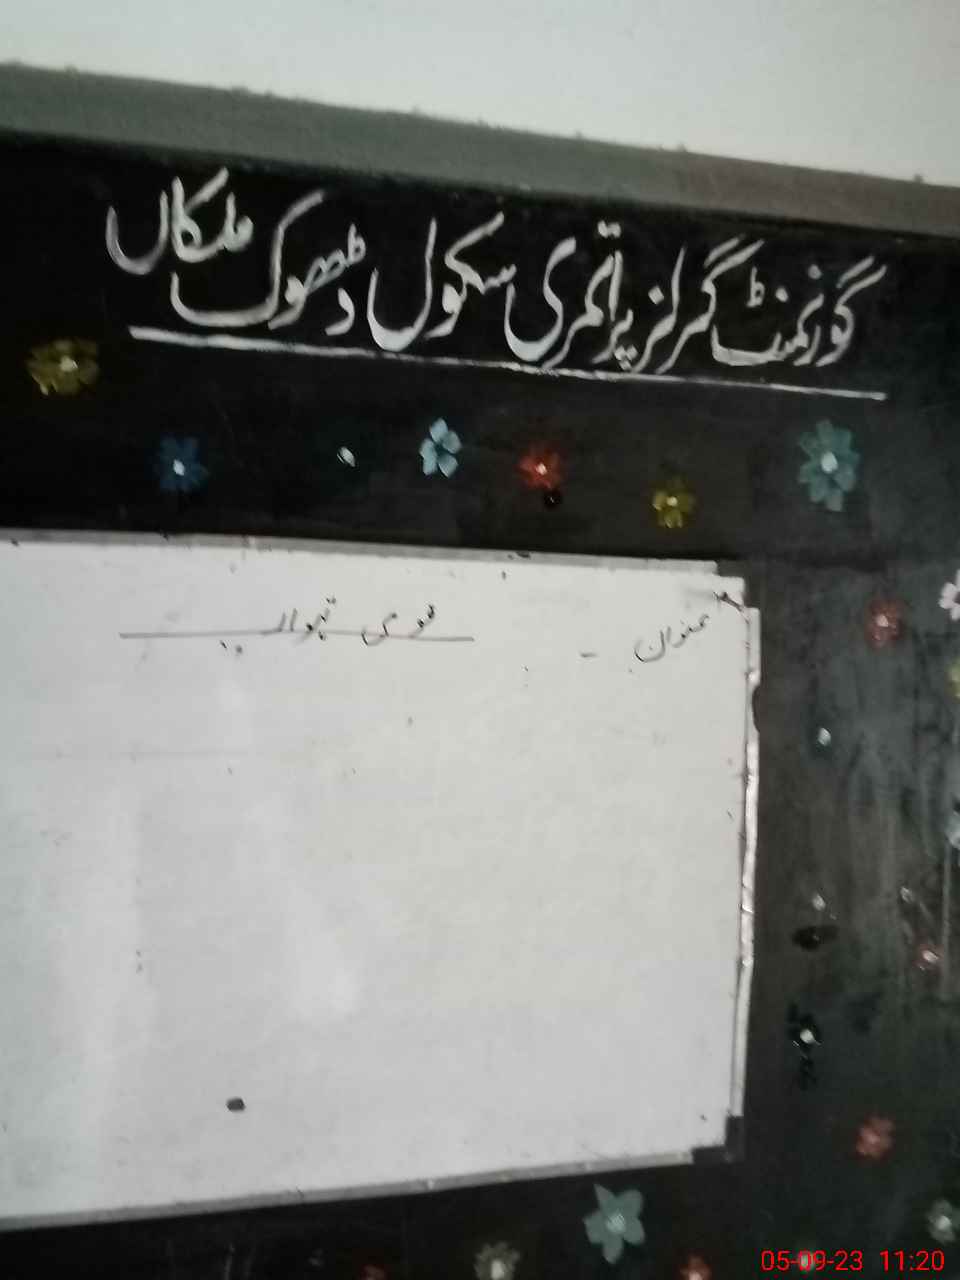 گورنمنٹ گرلز پرائمری سکول ڈھوک ملکاں
عنوان - قومی تہوار
05-09-23 11:20